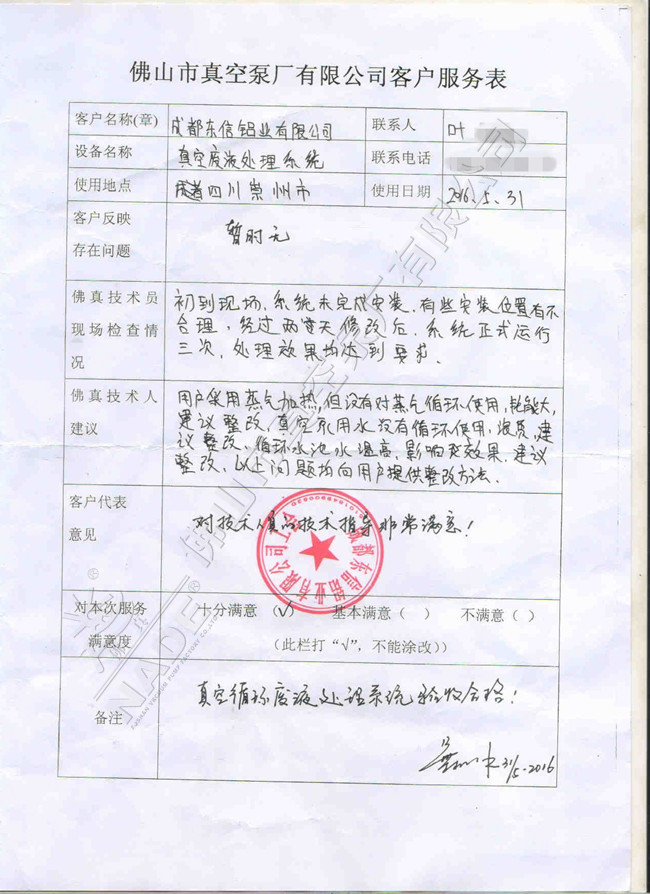 佛山市真空泵厂有限公司客户服务表
客户名称(章) 成都东信铝业有限公司 联系人 叶
设备名称 真空废液处理系统 联系电话
使用地点 成都四川崇州市 使用日期 2016.5.31
客户反映
存在问题
暂时无
佛真技术员
现场检查情
况
初到现场,系统未完成安装,有些安装位置有不
合理,经过两天修改后,系统正式运行
三次,处理效果均达到要求.
佛真技术人
建议
用户采用蒸气加热,但没有对蒸气循环使用,耗能大,
建议整改,真空泵用水没有循环使用,浪费,建
议整改,循环水池水温高,影响效果,建议
整改,以上问题均向用户提供整改方法.
客户代表
意见
对技术人员的技术指导非常满意!
成都东信铝业有限公司
对本次服务
满意度
十分满意 (√) 基本满意 ( ) 不满意 ( )
(此栏打“√”,不能涂改))
备注
真空循环废液处理系统验收合格!
31/5-2016
佛山市真空泵厂有限公司
NADE
FOSHAN VACUUM PUMP FACTORY CO.,LTD